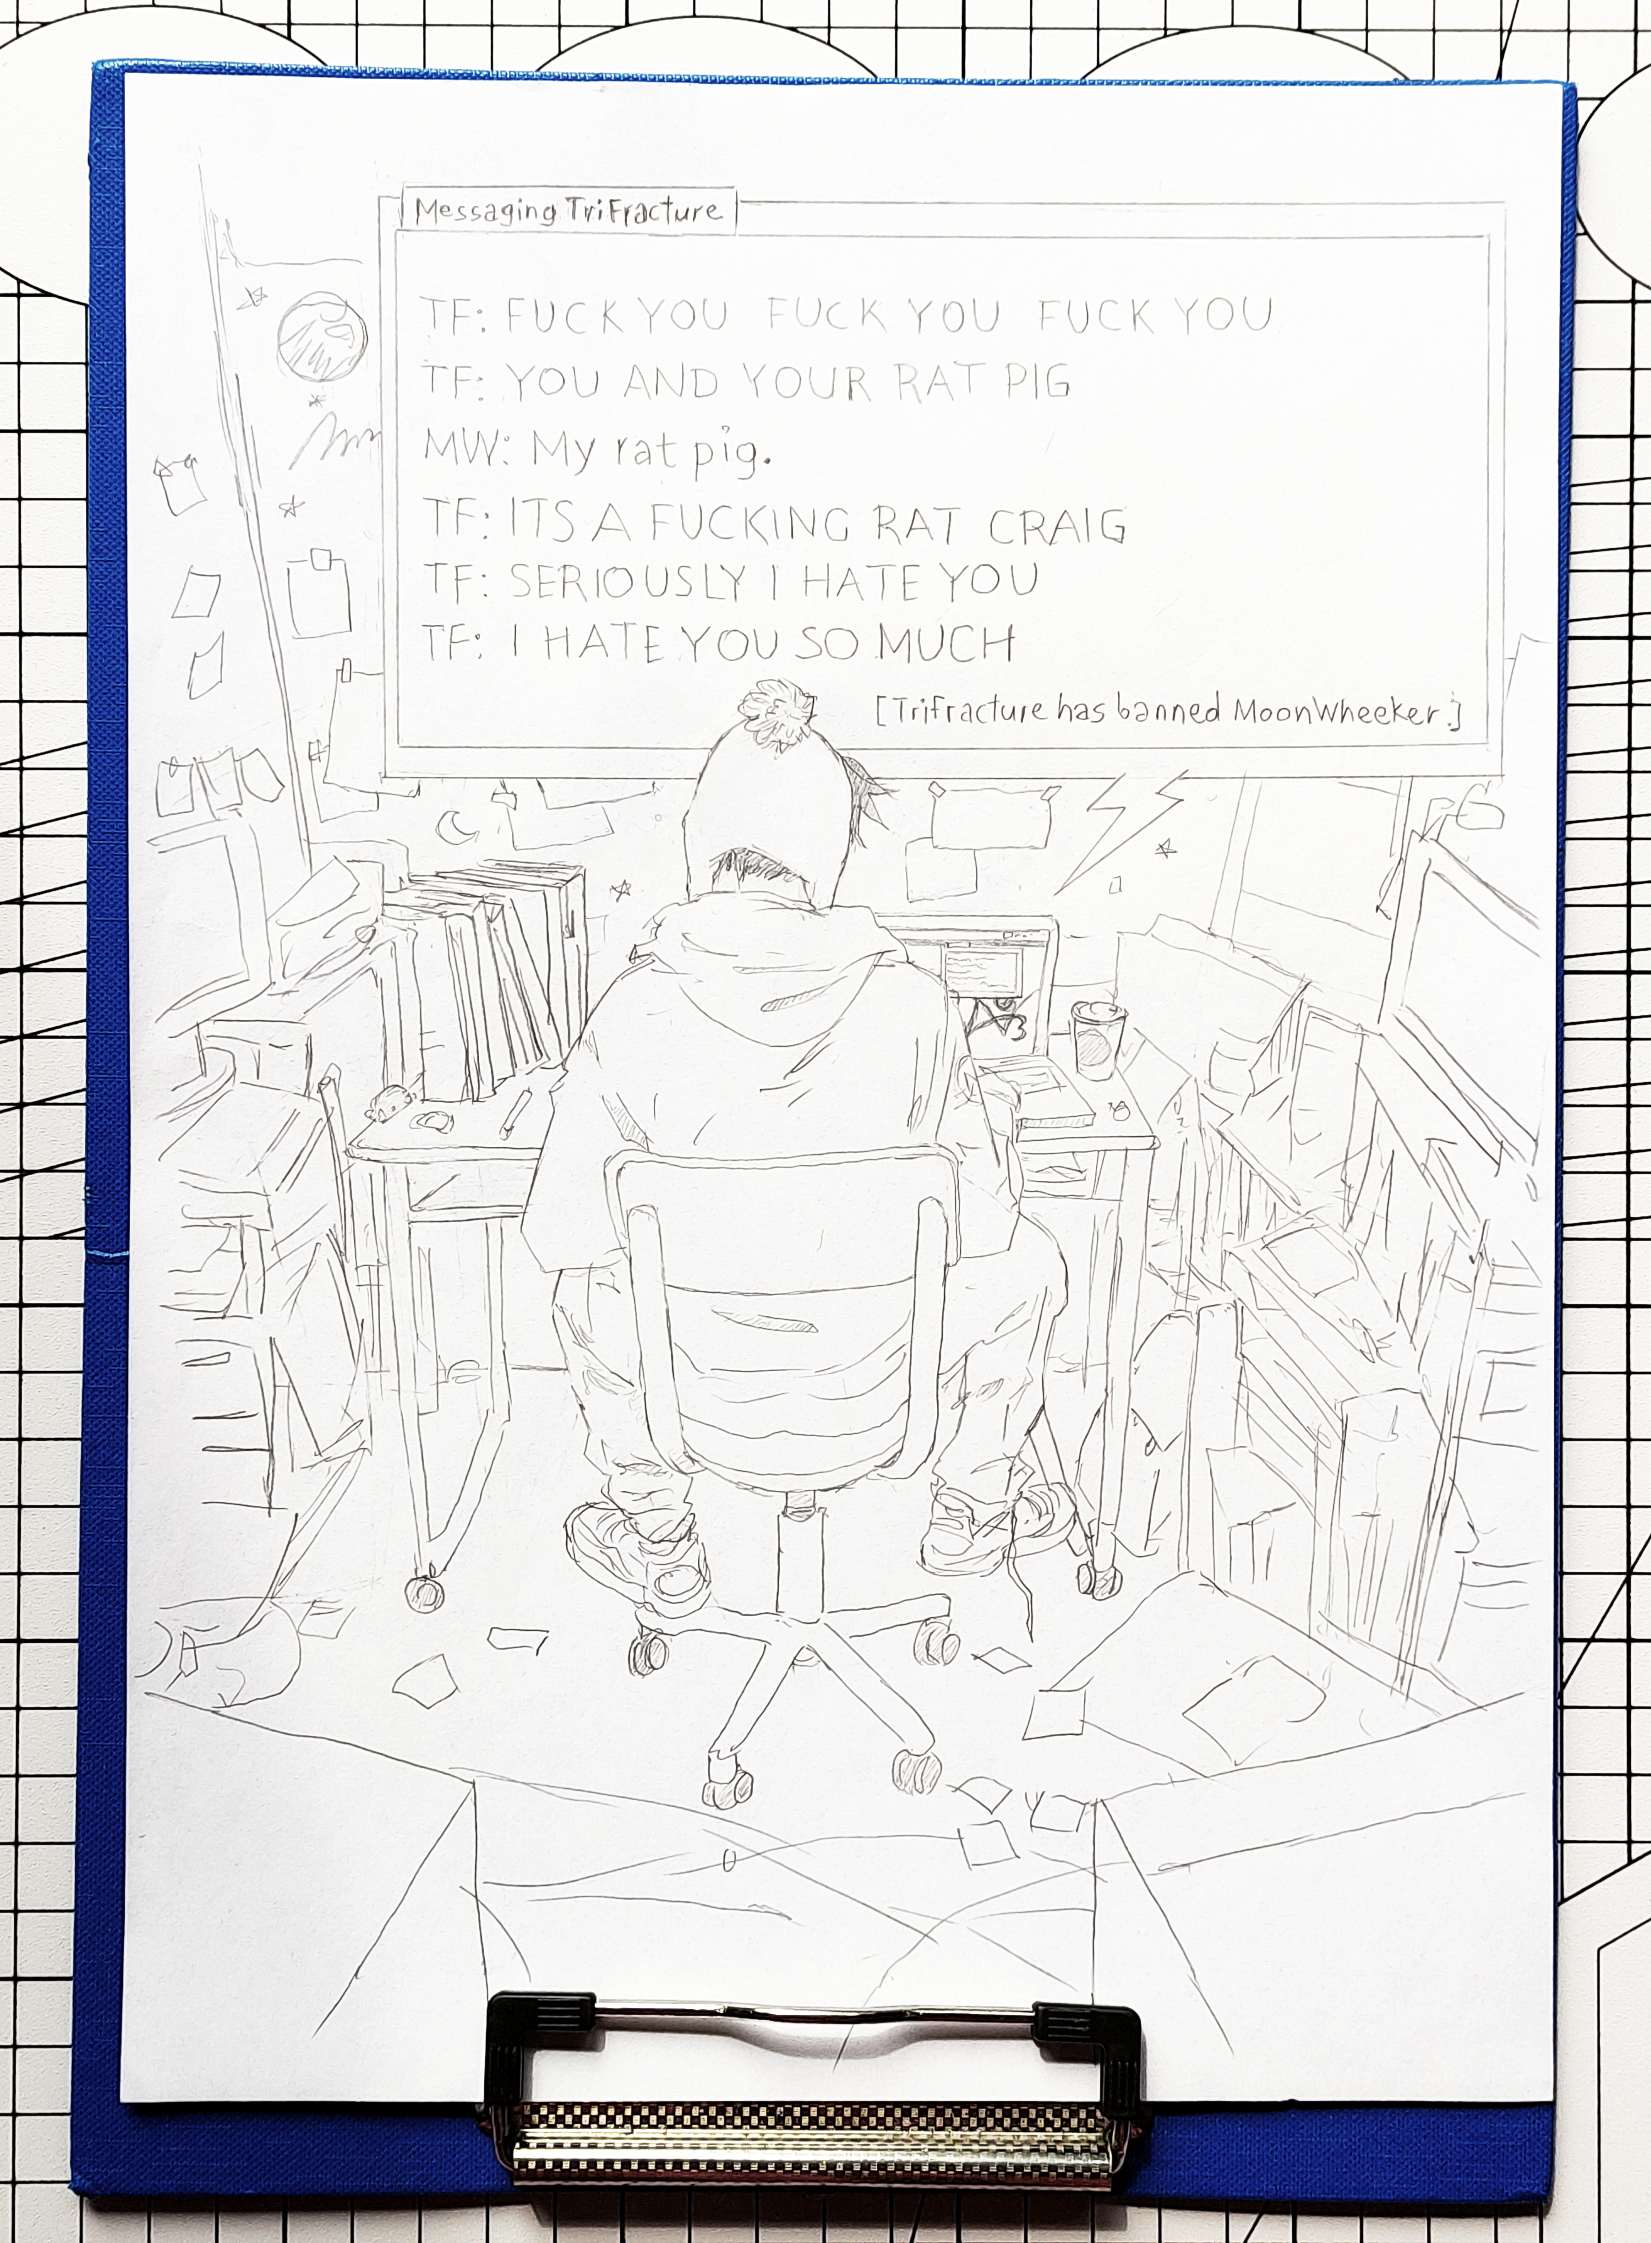 Messaging TriFracture
TF: FUCK YOU FUCK YOU FUCK YOU
TF: YOU AND YOUR RAT PIG
MW: My rat pig.
TF: ITS A FUCKING RAT CRAIG
TF: SERIOUSLY I HATE YOU
TF: I HATE YOU SO MUCH
[Trifracture has banned MoonWheeker.]